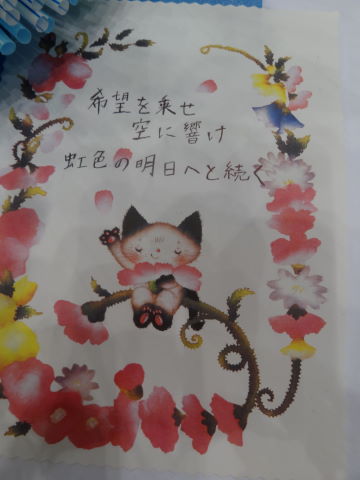 希望を乗せ
空に響け
虹色の明日へと続く